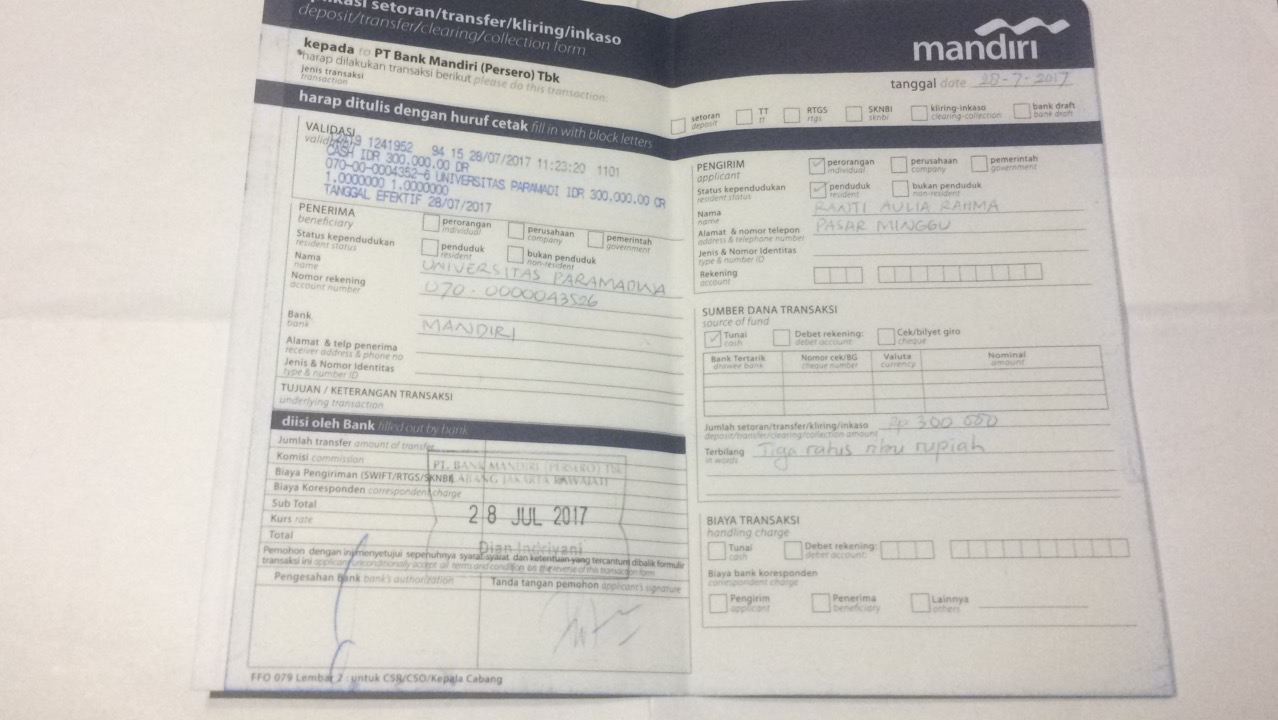 setoran/transfer/kliring/inkaso
deposit/transfer/clearing/collection form
mandiri
kepada to PT Bank Mandiri (Persero) Tbk
harap dilakukan transaksi berikut please do this transaction:
tanggal date 28-7-2017
jenis transaksi
transaction
setoran
deposit
TT
tt
RTGS
rtgs
SKNBI
sknbi
kliring-inkaso
clearing-collection
bank draft
bank draft
harap ditulis dengan huruf cetak fill in with block letters
VALIDASI
validation
CASH IDR 300,000.00 CR
1241952 94 15 28/07/2017 11:23:20 1101
070-00-0004352-6 UNIVERSITAS PARAMADI IDR 300,000.00 CR
1.0000000 1.0000000
TANGGAL EFEKTIF 28/07/2017
PENERIMA
beneficiary
perorangan
individual
perusahaan
company
pemerintah
government
Status kependudukan
resident status
penduduk
resident
bukan penduduk
non-resident
Nama
name
UNIVERSITAS PARAMADINA
Nomor rekening
account number
Bank
bank
MANDIRI
Alamat & telp penerima
receiver address & phone no
Jenis & Nomor Identitas
type & number ID
TUJUAN / KETERANGAN TRANSAKSI
underlying transaction
diisi oleh Bank filled out by bank
Jumlah transfer amount of transfer
Komisi commission
Biaya Pengiriman (SWIFT/RTGS/SKNBI)
Biaya Koresponden correspondent charge
Sub Total
Kurs rate
Total
28 JUL 2017
Dian Indriyani
Pemohon dengan ini menyetujui sepenuhnya syarat-syarat dan ketentuan yang tercantum dibalik formulir
Pengesahan Bank bank's authorization
Tanda tangan pemohon applicant's signature
PENGIRIM
applicant
perorangan
individual
perusahaan
company
pemerintah
government
Status kependudukan
resident status
penduduk
resident
bukan penduduk
non-resident
Nama
name
RANTI AULIA RAHMA
Alamat & nomor telepon
address & telephone number
PASAR MINGGU
Jenis & Nomor Identitas
type & number ID
Rekening
account
SUMBER DANA TRANSAKSI
source of fund
Tunai
cash
Debet rekening:
debet account
Cek/bilyet giro
cheque
Bank Tertarik
drawee bank
Nomor cek/BG
cheque number
Valuta
currency
Nominal
amount
Jumlah setoran/transfer/kliring/inkaso
deposit/transfer/clearing/collection amount
Rp 300 000
Terbilang
in words
Tiga ratus ribu rupiah
BIAYA TRANSAKSI
handling charge
Tunai
cash
Debet rekening:
debet account
Biaya bank koresponden
correspondent charge
Pengirim
applicant
Penerima
beneficiary
Lainnya
others
FFO 079 Lembar 2 : untuk CSB/CSO/Kepala Cabang